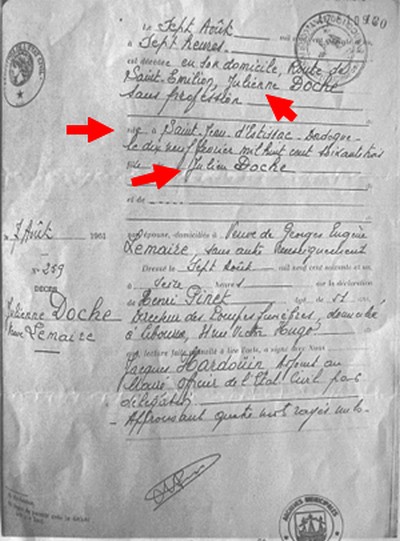 Le Sept Août mil neuf cent
à Sept heures
est décédée en son domicile, Route de
Saint-Emilion, Julienne Doche
sans profession
née à Saint-Jean d'Estissac Dordogne
le dix neuf Janvier mil huit cent soixante trois
fille de Julien Doche
et de
Veuve de Georges Eugène
Lemaire, sans autre renseignement
Dressé le Sept Août mil neuf cent soixante et un
à seize heures sur la déclaration
de Henri Pinet âgé 51 ans
Directeur des Pompes funèbres, domicilié
à Libourne, rue Victor Hugo
lecture faite et invité à lire l'acte, a signé avec Nous
Jacques Hardouin Adjoint au
Maire Officier de l'Etat Civil par
délégation
Approuvant quatre mots rayés nuls
7 Août 1961
N° 259
DECES
Julienne Doche
Veuve Lemaire
ARCHIVES MUNICIPALES